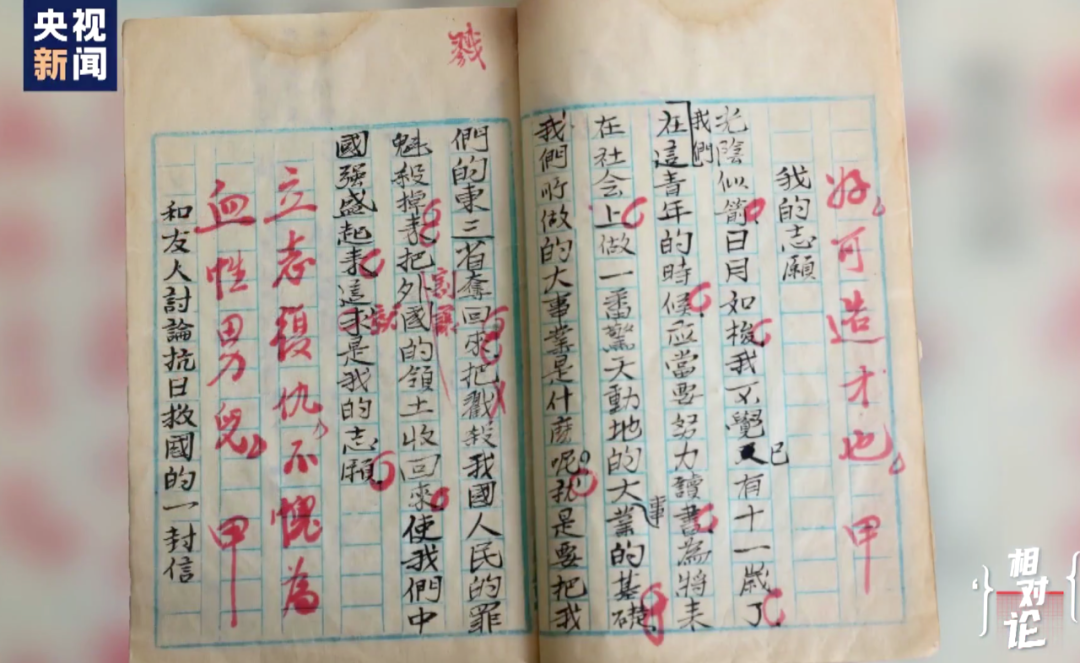 央视
新闻
好可造才也 甲
我的志願
光陰似箭日月如梭我不覺已有十一歲了
我們
在這青年的時候应當要努力讀書為將来
在社会上做一番驚天動地的大事業的基礎
我們所做的大事業是什麽呢我是要把我
戮
們的東三省奪回来把戮殺我國人民的罪
魁殺掉来把外國的領土收回来使我們中
割讓
國強盛起来這才是我的志願
立志復仇不愧為
血性男兒 甲
和友人討論抗日救國的一封信
相对论